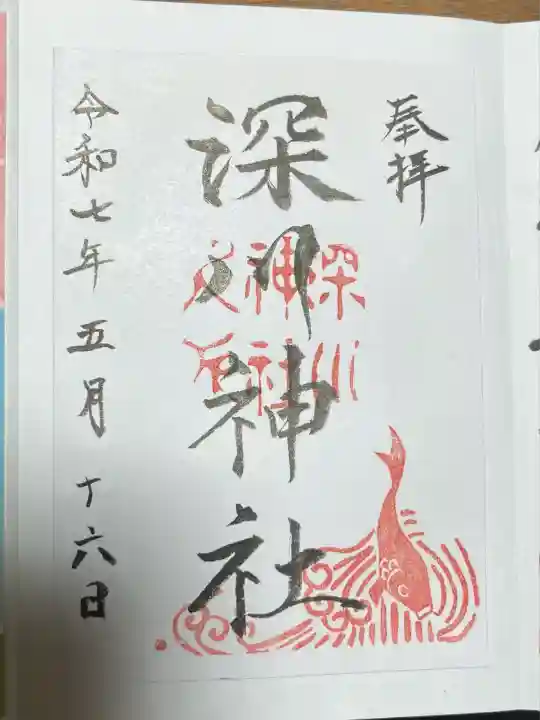 奉拝
深川神社
深川
神社
令和七年五月十六日